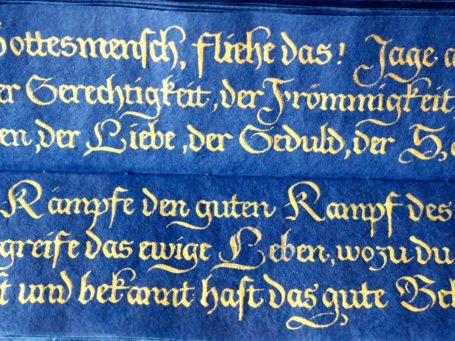 Gottesmensch, fliehe das! Jage
er Gerechtigkeit, der Frömmigkeit,
en, der Liebe, der Geduld, der S
Kämpfe den guten Kampf des
greife das ewige Leben, wozu du
t und bekannt hast das gute Bek